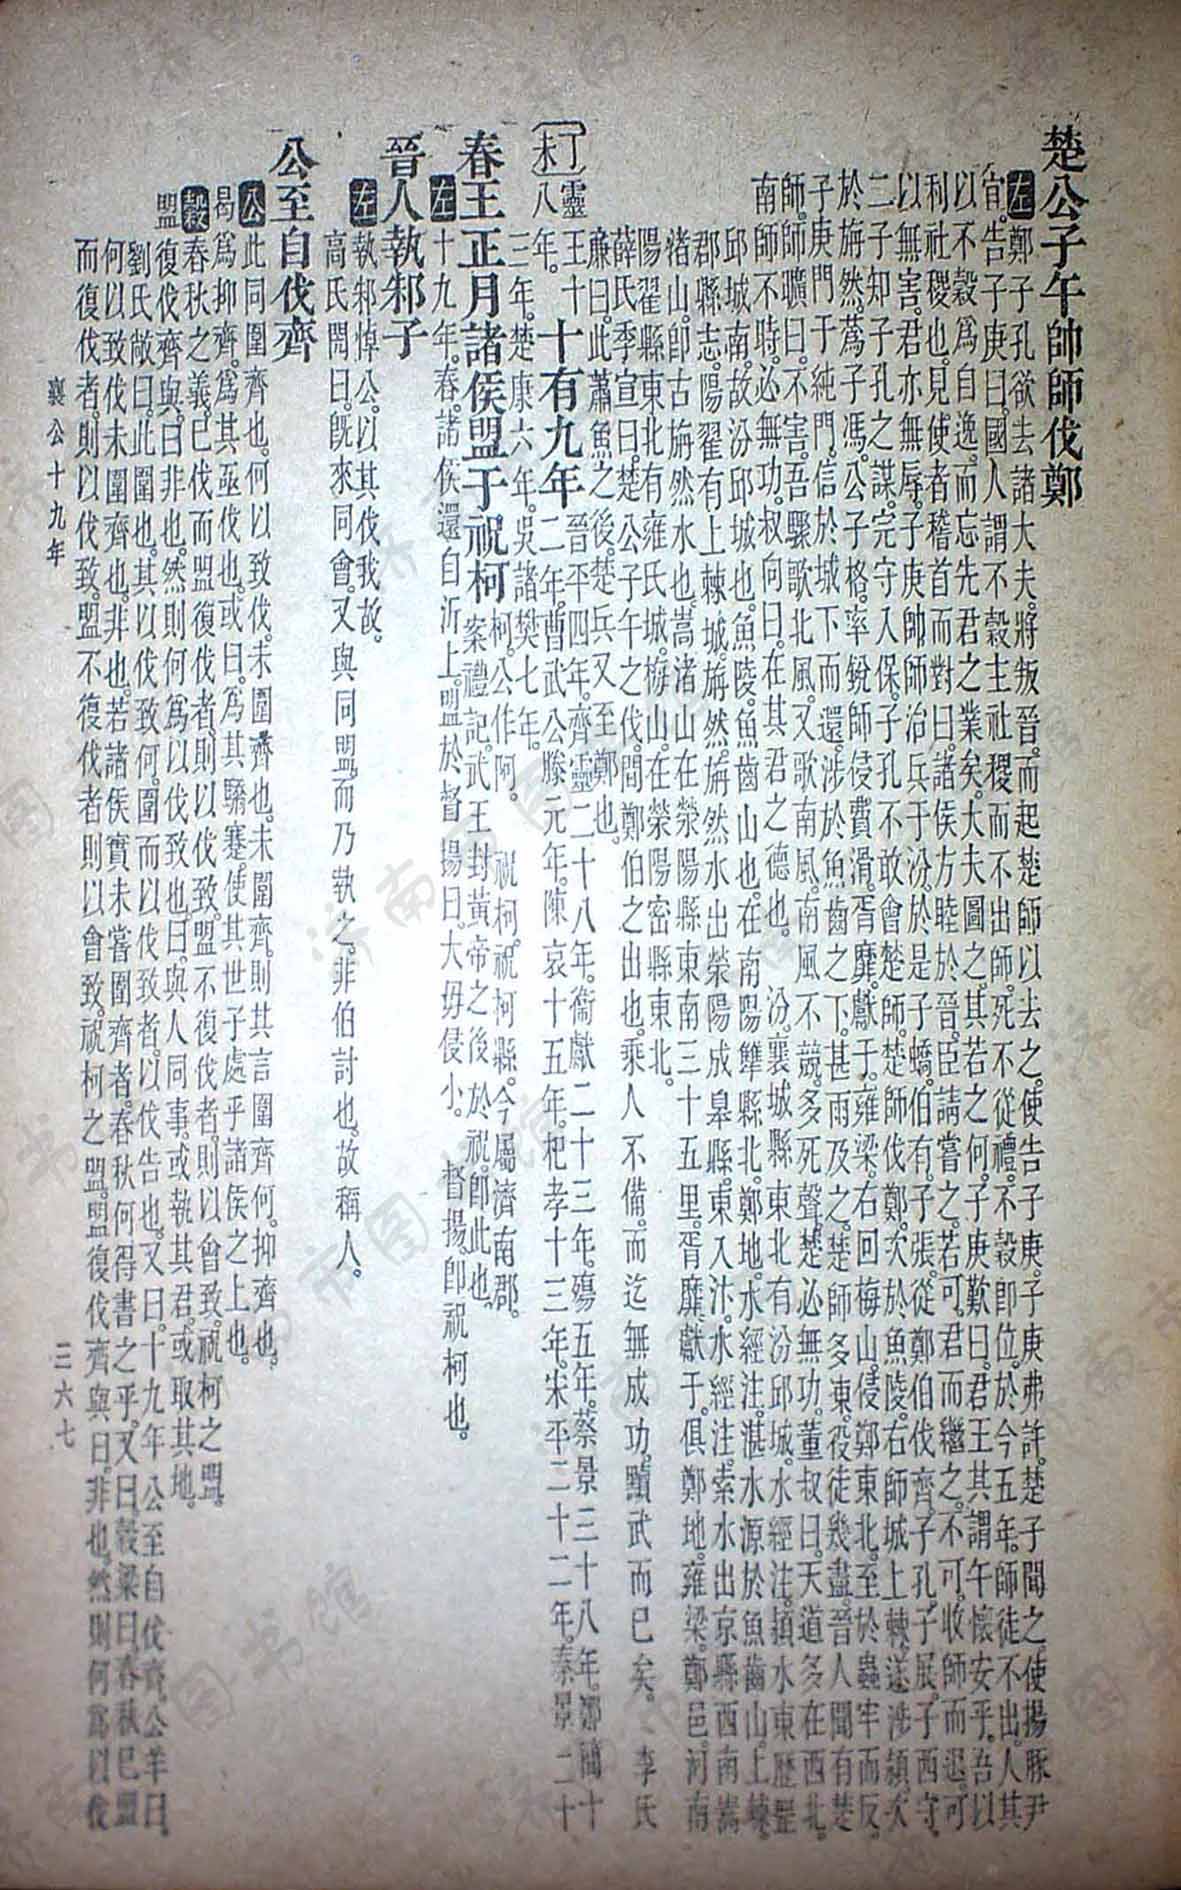 楚公子午帥師伐鄭
左 鄭子孔欲去諸大夫。將叛晉。而起楚師以去之。使告子庚。子庚弗許。楚子聞之。使揚豚尹
宜。告子庚曰。國人謂不穀主社稷。而不出師。死不從禮。不穀即位。於今五年。師徒不出。人其
以不穀爲自逸。而忘先君之業矣。大夫圖之。其若之何。子庚歎曰。君王其謂午懷安乎。吾以
利社稷也。見使者稽首而對曰。諸侯方睦於晉。臣請嘗之。若可。君而繼之。不可。收師而退。可
以無害。君亦無辱。子庚帥師治兵于汾。於是子蟜。伯有。子張。從鄭伯伐齊。子孔。子展。子西守。
二子知子孔之謀。完守入保。子孔不敢會楚師。楚師伐鄭。次於魚陵。右師城上棘。遂涉潁。次
於旃然。蔿子馮。公子格。率銳師侵費滑。胥靡。獻于。雍梁。右回梅山。侵鄭東北。至於蟲牢而反。
子庚門于純門。信於城下而還。涉於魚齒之下。甚雨及之。楚師多凍。役徒幾盡。晉人聞有楚
師。師曠曰。不害。吾驟歌北風。又歌南風。南風不競。多死聲。楚必無功。董叔曰。天道多在西北。
南師不時。必無功。叔向曰。在其君之德也。 汾。襄城縣東北有汾邱城。水經注。潁水東歷罡
邱城南。故汾邱城也。魚陵。魚齒山也。在南陽犨縣北。鄭地。水經注。湛水源於魚齒山。上棘
郡縣志。陽翟有上棘城。旃然。旃然水出滎陽成皋縣。東入汴。水經注。索水出京縣西南嵩
渚山。卽古旃然水也。嵩渚山在滎陽縣東南三十五里。胥靡獻于。俱鄭地。雍梁。鄭邑。河南
陽翟縣東北有雍氏城。梅山。在滎陽密縣東北。
薛氏季宣曰。楚公子午之伐。間鄭伯之出也。乘人不備。而迄無成功。黷武而已矣。 李氏
廉曰。此蕭魚之後。楚兵又至鄭也。
〔丁未〕靈王十八年。 十有九年 晉平四年。齊靈二十八年。衞獻二十三年。殤五年。蔡景三十八年。鄭簡十
三年。楚康六年。吳諸樊七年。二年。曹武公滕元年。陳哀十五年。杞孝十三年。宋平二十二年。秦景二十
春王正月諸侯盟于祝柯 柯。公作阿。 祝柯。祝柯縣。今屬濟南郡。
案禮記。武王封黃帝之後於祝。卽此也。
左 十九年。春。諸侯還自沂上。盟於督揚曰。大毋侵小。 督揚。卽祝柯也。
晉人執邾子
左 執邾悼公。以其伐我故。
高氏閌曰。旣來同會。又與同盟。而乃執之。非伯討也。故稱人。
公至自伐齊
公 此同圍齊也。何以致伐。未圍齊也。未圍齊。則其言圍齊何。抑齊也。
曷爲抑齊。爲其亟伐也。或曰。爲其驕蹇。使其世子處乎諸侯之上也。
穀 春秋之義。已伐而盟復伐者。則以伐致。盟不復伐者。則以會致。祝柯之盟。
盟復伐齊與。曰非也。然則何爲以伐致也。曰。與人同事。或執其君。或取其地。
劉氏敞曰。此圍也。其以伐致何。圍而以伐致者。以伐告也。又曰。十九年公至自伐齊。公羊曰。
何以致伐。未圍齊也。非也。若諸侯實未嘗圍齊者。春秋何得書之乎。又曰。穀梁曰。春秋已盟
而復伐者。則以伐致。盟不復伐者則以會致。祝柯之盟。盟復伐齊與曰。非也。然則何爲以伐
襄公十九年
三六七